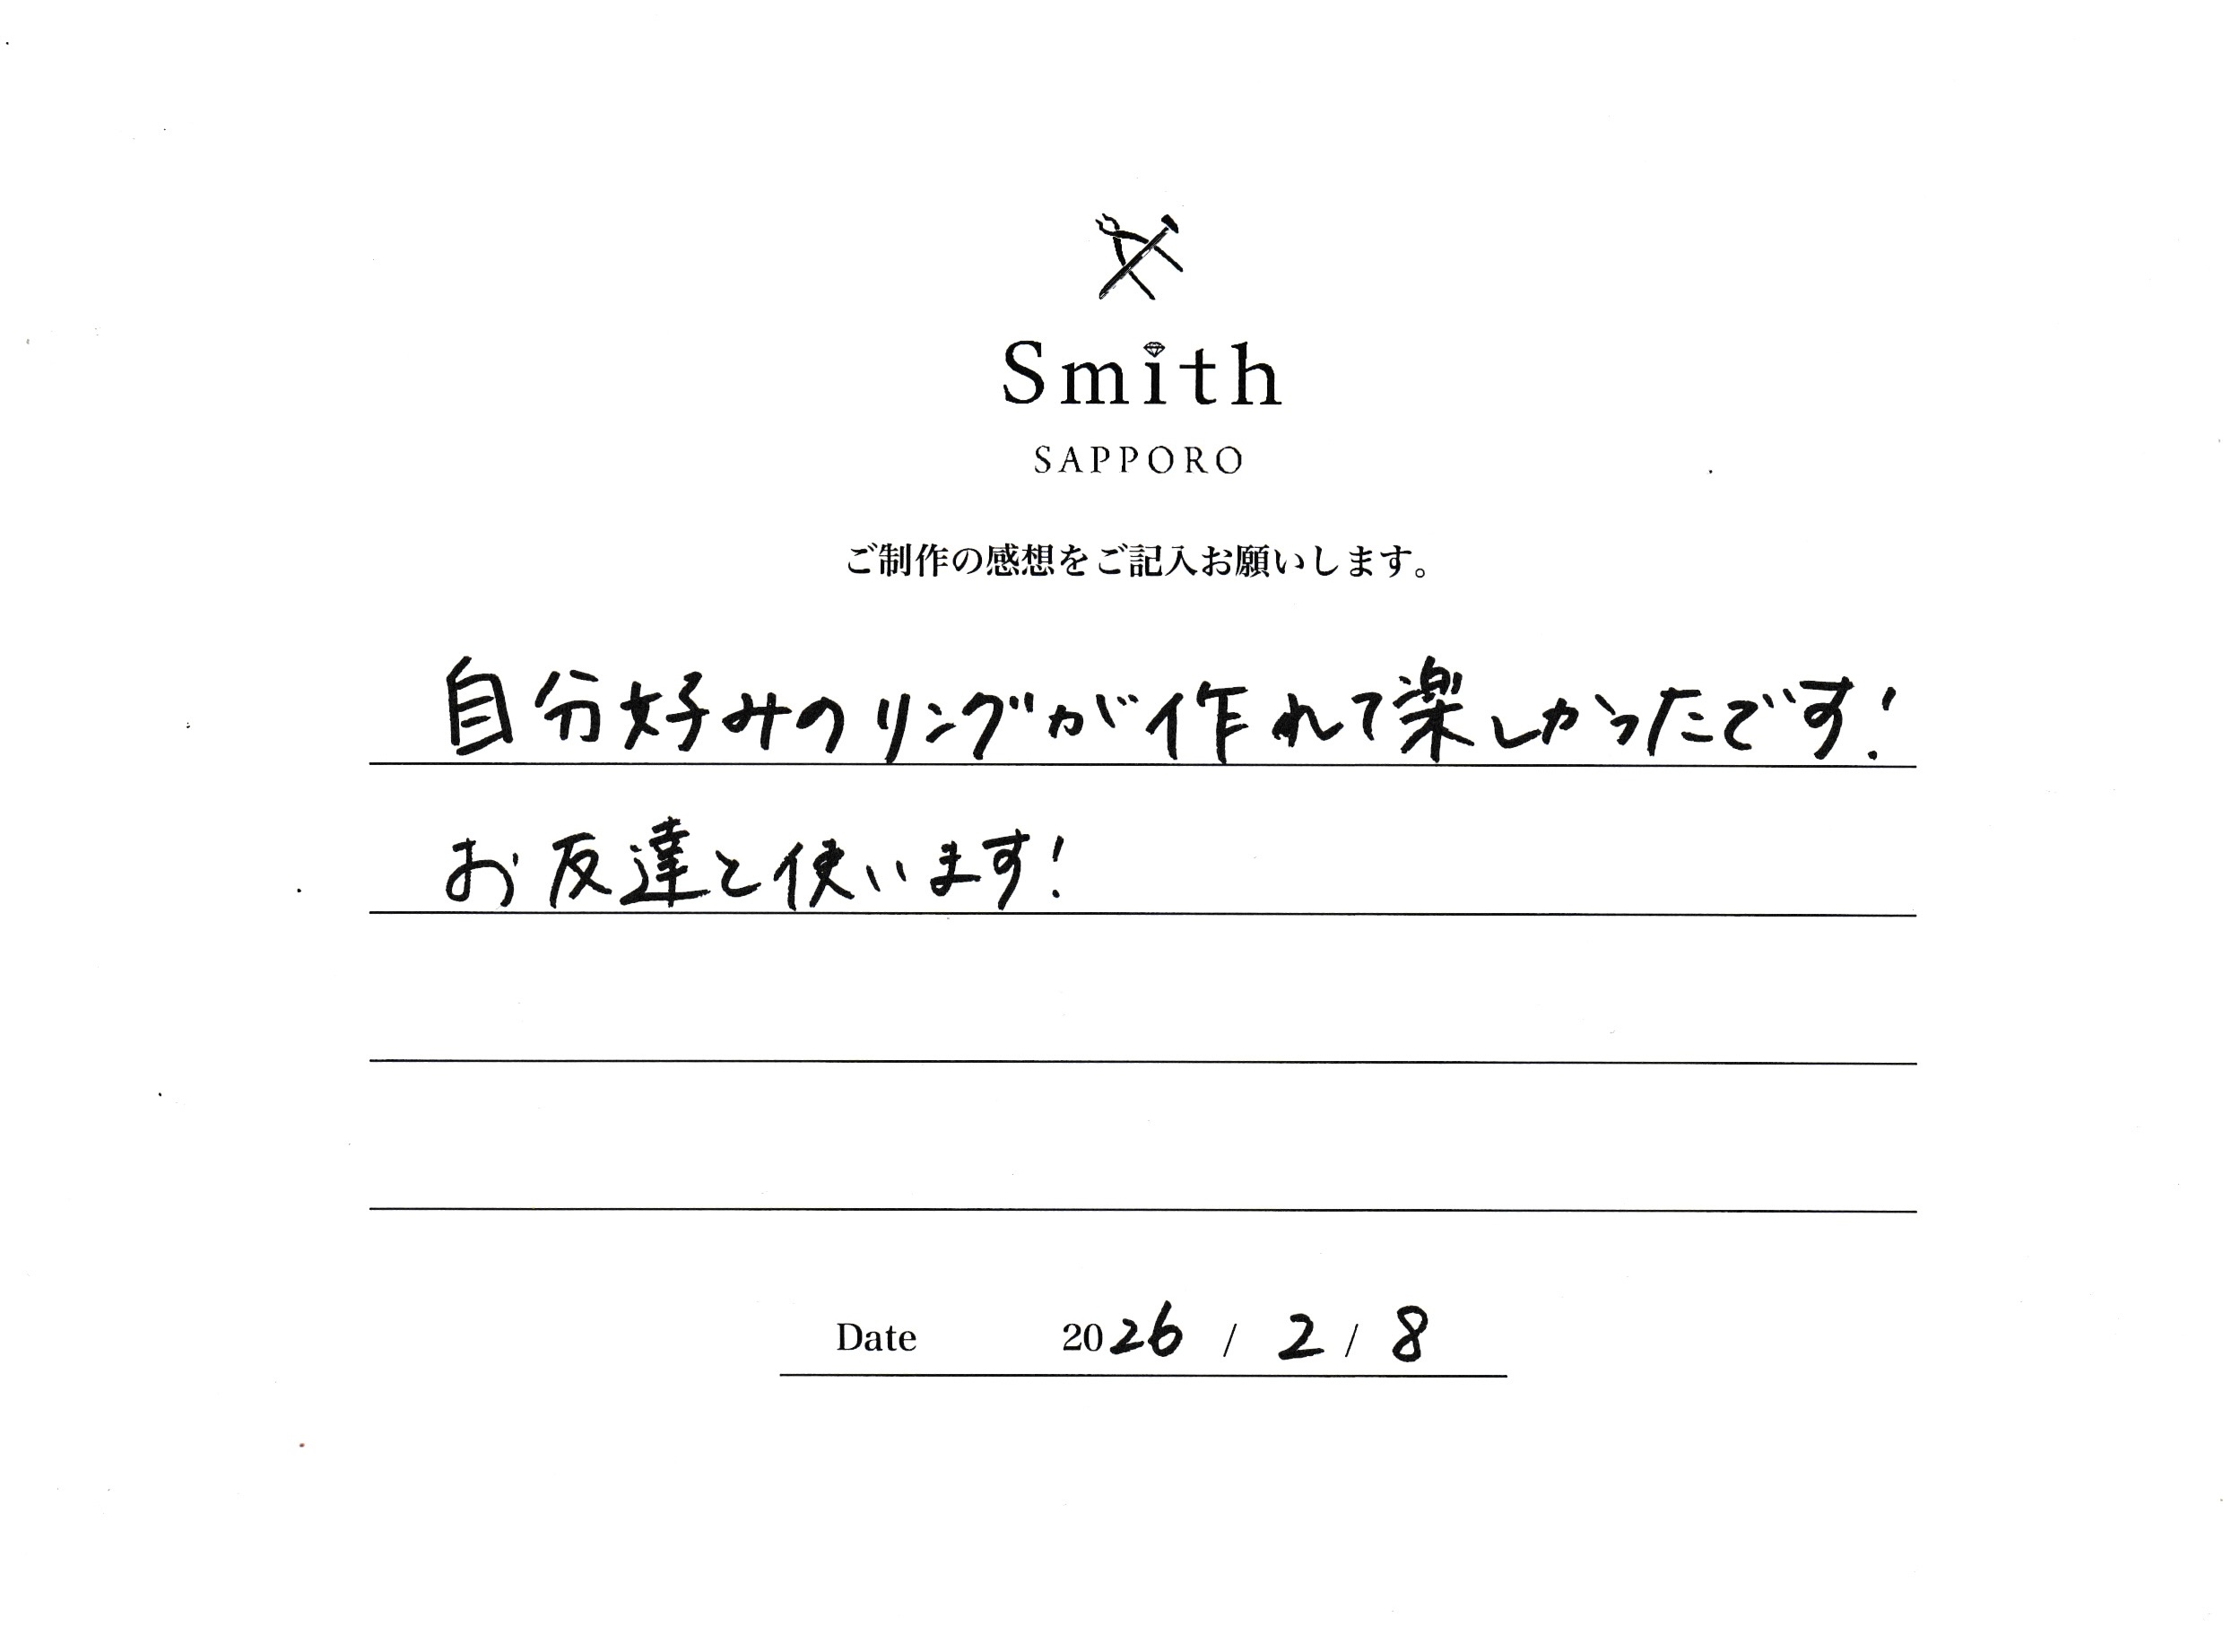 Smith
SAPPORO
ご制作の感想をご記入お願いします。
自分好みのリングが作れて楽しかったです!
お友達と使います!
Date 2026 / 2 / 8